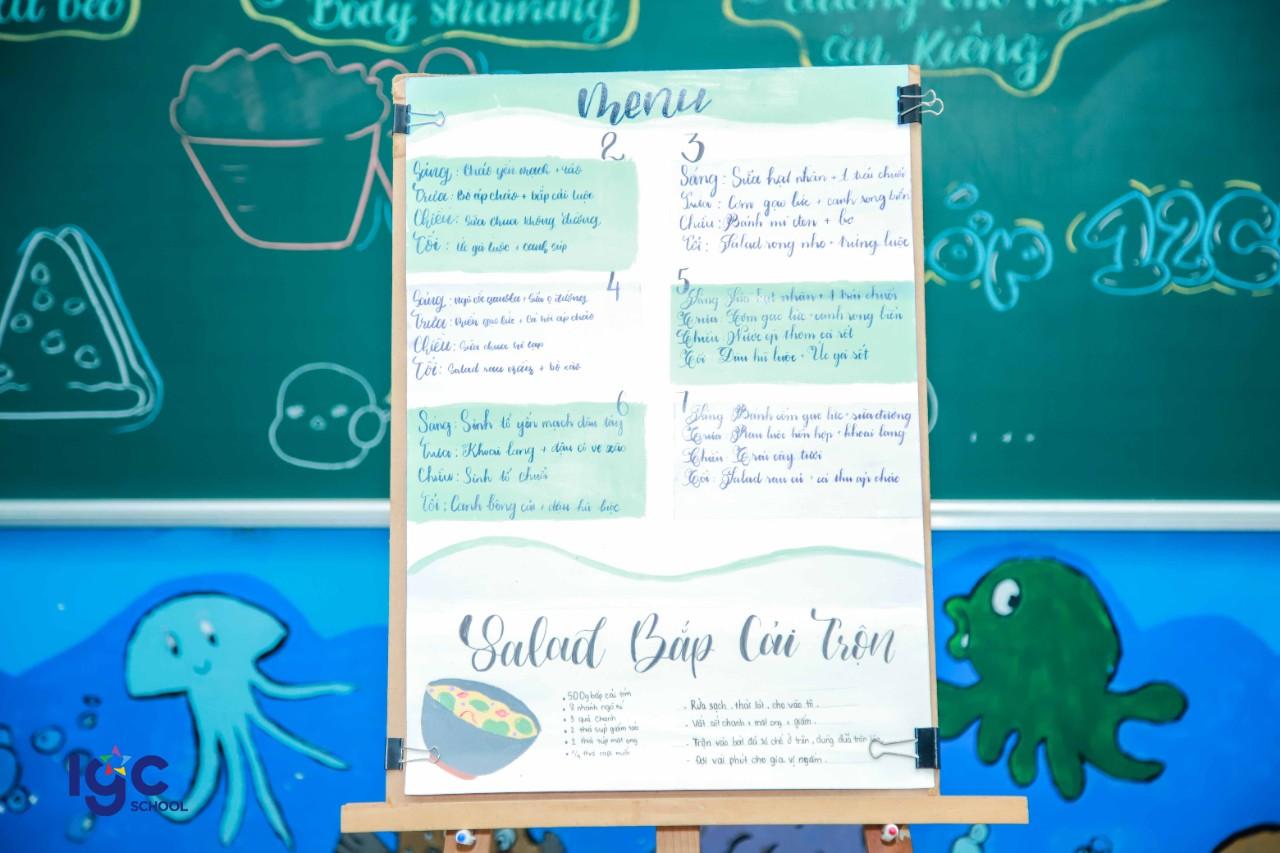 béo
Body shaming
ăn kiêng
Menu
2
Sáng: Cháo yến mạch + táo
Trưa: Bò áp chảo + bắp cải luộc
Chiều: Sữa chua không đường
Tối: Ức gà luộc + canh súp
3
Sáng: Sữa hạt nhân + 1 trái chuối
Trưa: Cơm gạo lức + canh rong biển
Chiều: Bánh mì đen + bơ
Tối: Salad rong nho + trứng luộc
4
Sáng: Ngũ cốc + sữa đường
Trưa: Miến gạo lức + Cá hồi áp chảo
Chiều: Sữa chua
Tối: Salad rau + bò xào
5
Sáng Sữa hạt nhân + 1 trái chuối
Trưa: Cơm gạo lức canh rong biển
Chiều: Nước ép thơm cà rốt
Tối Đậu hũ luộc Ức gà sốt
6
Sáng: Sinh tố yến mạch dâu tây
Trưa: Khoai lang + đậu cô ve xào
Chiều: Sinh tố chuối
Tối: Canh bông cải + đậu hũ luộc
7
Sáng Bánh cốm gạo lức sữa đường
Trưa: Rau luộc hỗn hợp + khoai lang
Chiều Trái cây tươi
Tối: Salad rau củ + cá thu áp chảo
Lớp 12C
...
Salad Bắp Cải Trộn
500g bắp cải tím
8 nhánh ngò rí
3 quả chanh
2 thá súp giấm táo
2 thá súp mật ong
1/4 thá muối
- Rửa sạch, thái lát, cho vào tô.
- Vắt cốt chanh + mật ong + giấm.
- Trộn vào bát đã sơ chế ở trên, dùng đũa trộn
- Đợi vài phút cho gia vị ngấm.
IGC
SCHOOL